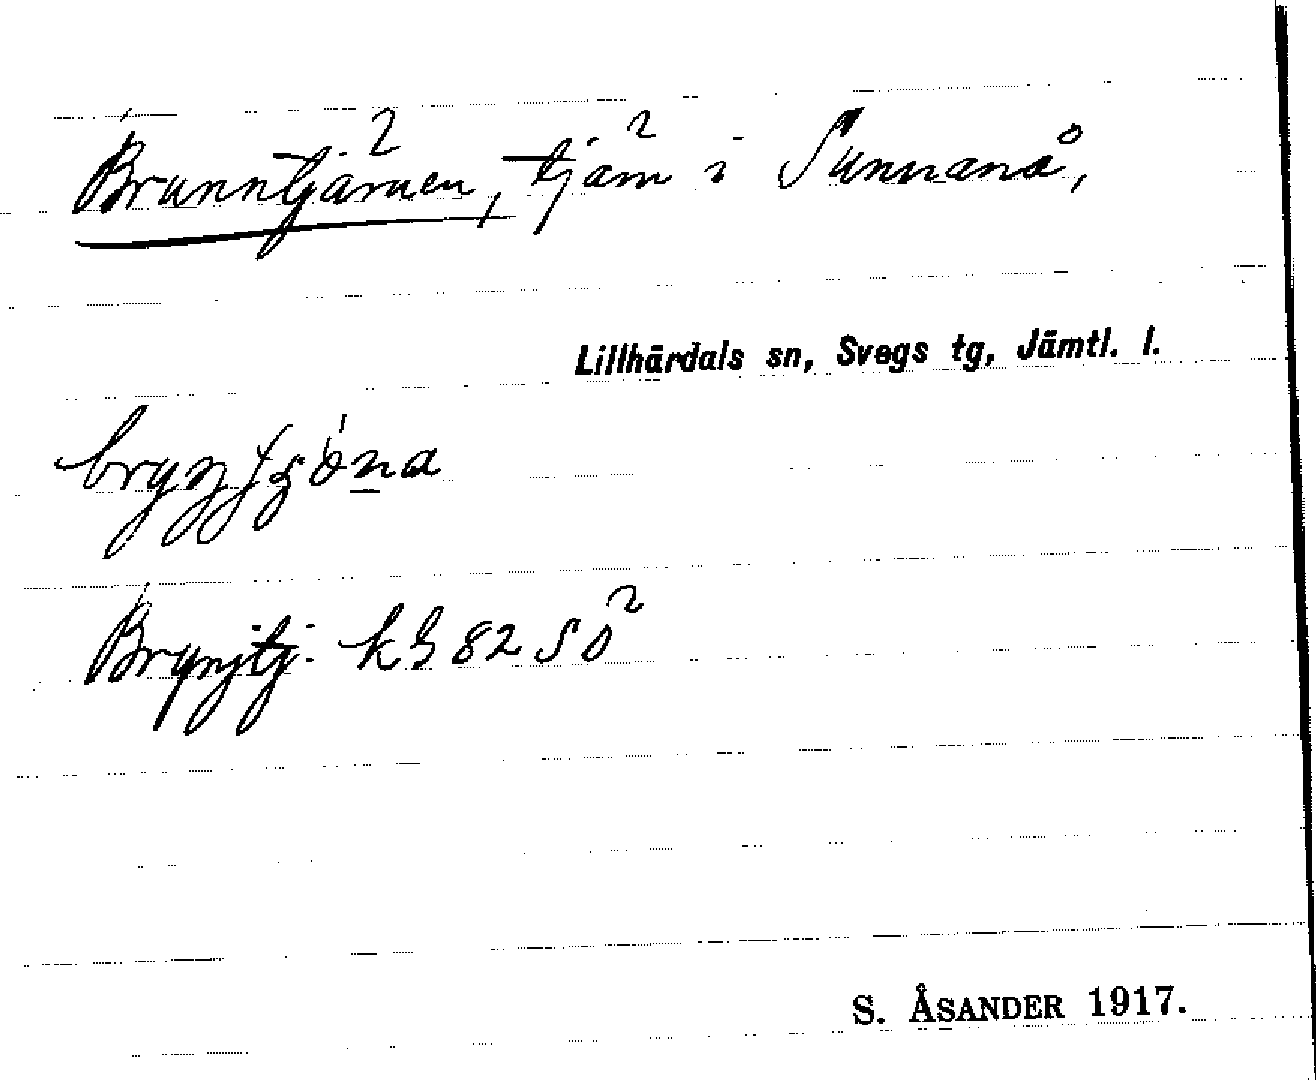 Brunntjärnen, tjärn i Sunnanå,
Lillhärdals sn, Svegs tg, Jämtl. l.
Brynjtj. kb 82 SO
S. ÅSANDER 1917.